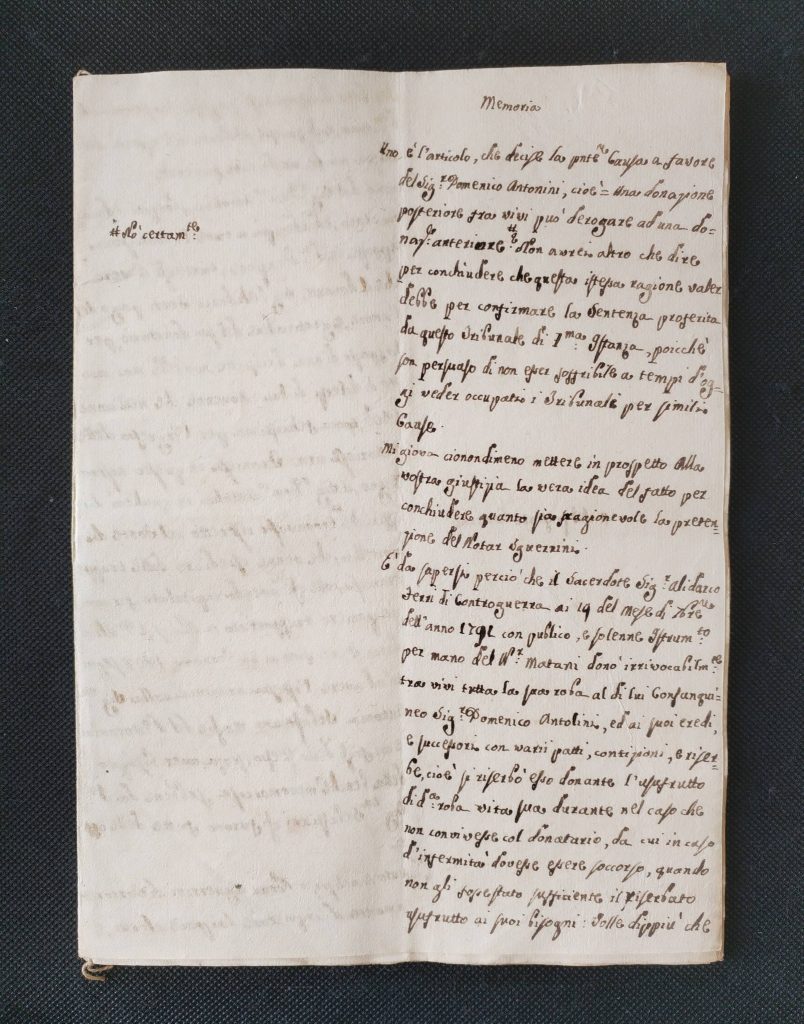 Memoria
Uno è l'articolo, che decise la pnte Causa a favore
del Sig.r Domenico Antonini, cioè = Una donazione
posteriore fra vivi può derogare ad una do=
naz.e anteriore? # Non avrei altro che dire
# Nò certam.te
per conchiudere che questa istessa ragione valer
debbe per confirmare la Sentenza proferita
da questo Tribunale di 1.ma Istanza, poicchè
son persuaso di non esser soffribile a tempi d'og=
gi veder occupati i Tribunali per simili
Cause.
Mi giova cionondimeno mettere in prospetto alla
vostra giustizia la vera idea del fatto per
conchiudere quanto sia ragionevole la preten=
zione del Notar Sguerrini.
E' da sapersi perciò che il Sacerdote Sig.r Alidarco
Ferri di Controguerra ai 19 del mese di
dell'anno 1791 con publico, e solenne Istrum.to
per mano del N.r Matani donò irrivocabilm.te
tra vivi tutta la sua roba al di lui Consangui=
neo Sig.r Domenico Antolini, ed ai suoi eredi,
e successori con varii patti, contizioni, e riser=
be, cioè si riserbò esso donante l'usufrutto
di d.a roba vita sua durante nel caso che
non convivesse col donatario, da cui in caso
d'infermità dovesse essere soccorso, quando
non gli fosse stato sufficiente il riserbato
usufrutto ai suoi bisogni: Volle dippiù che